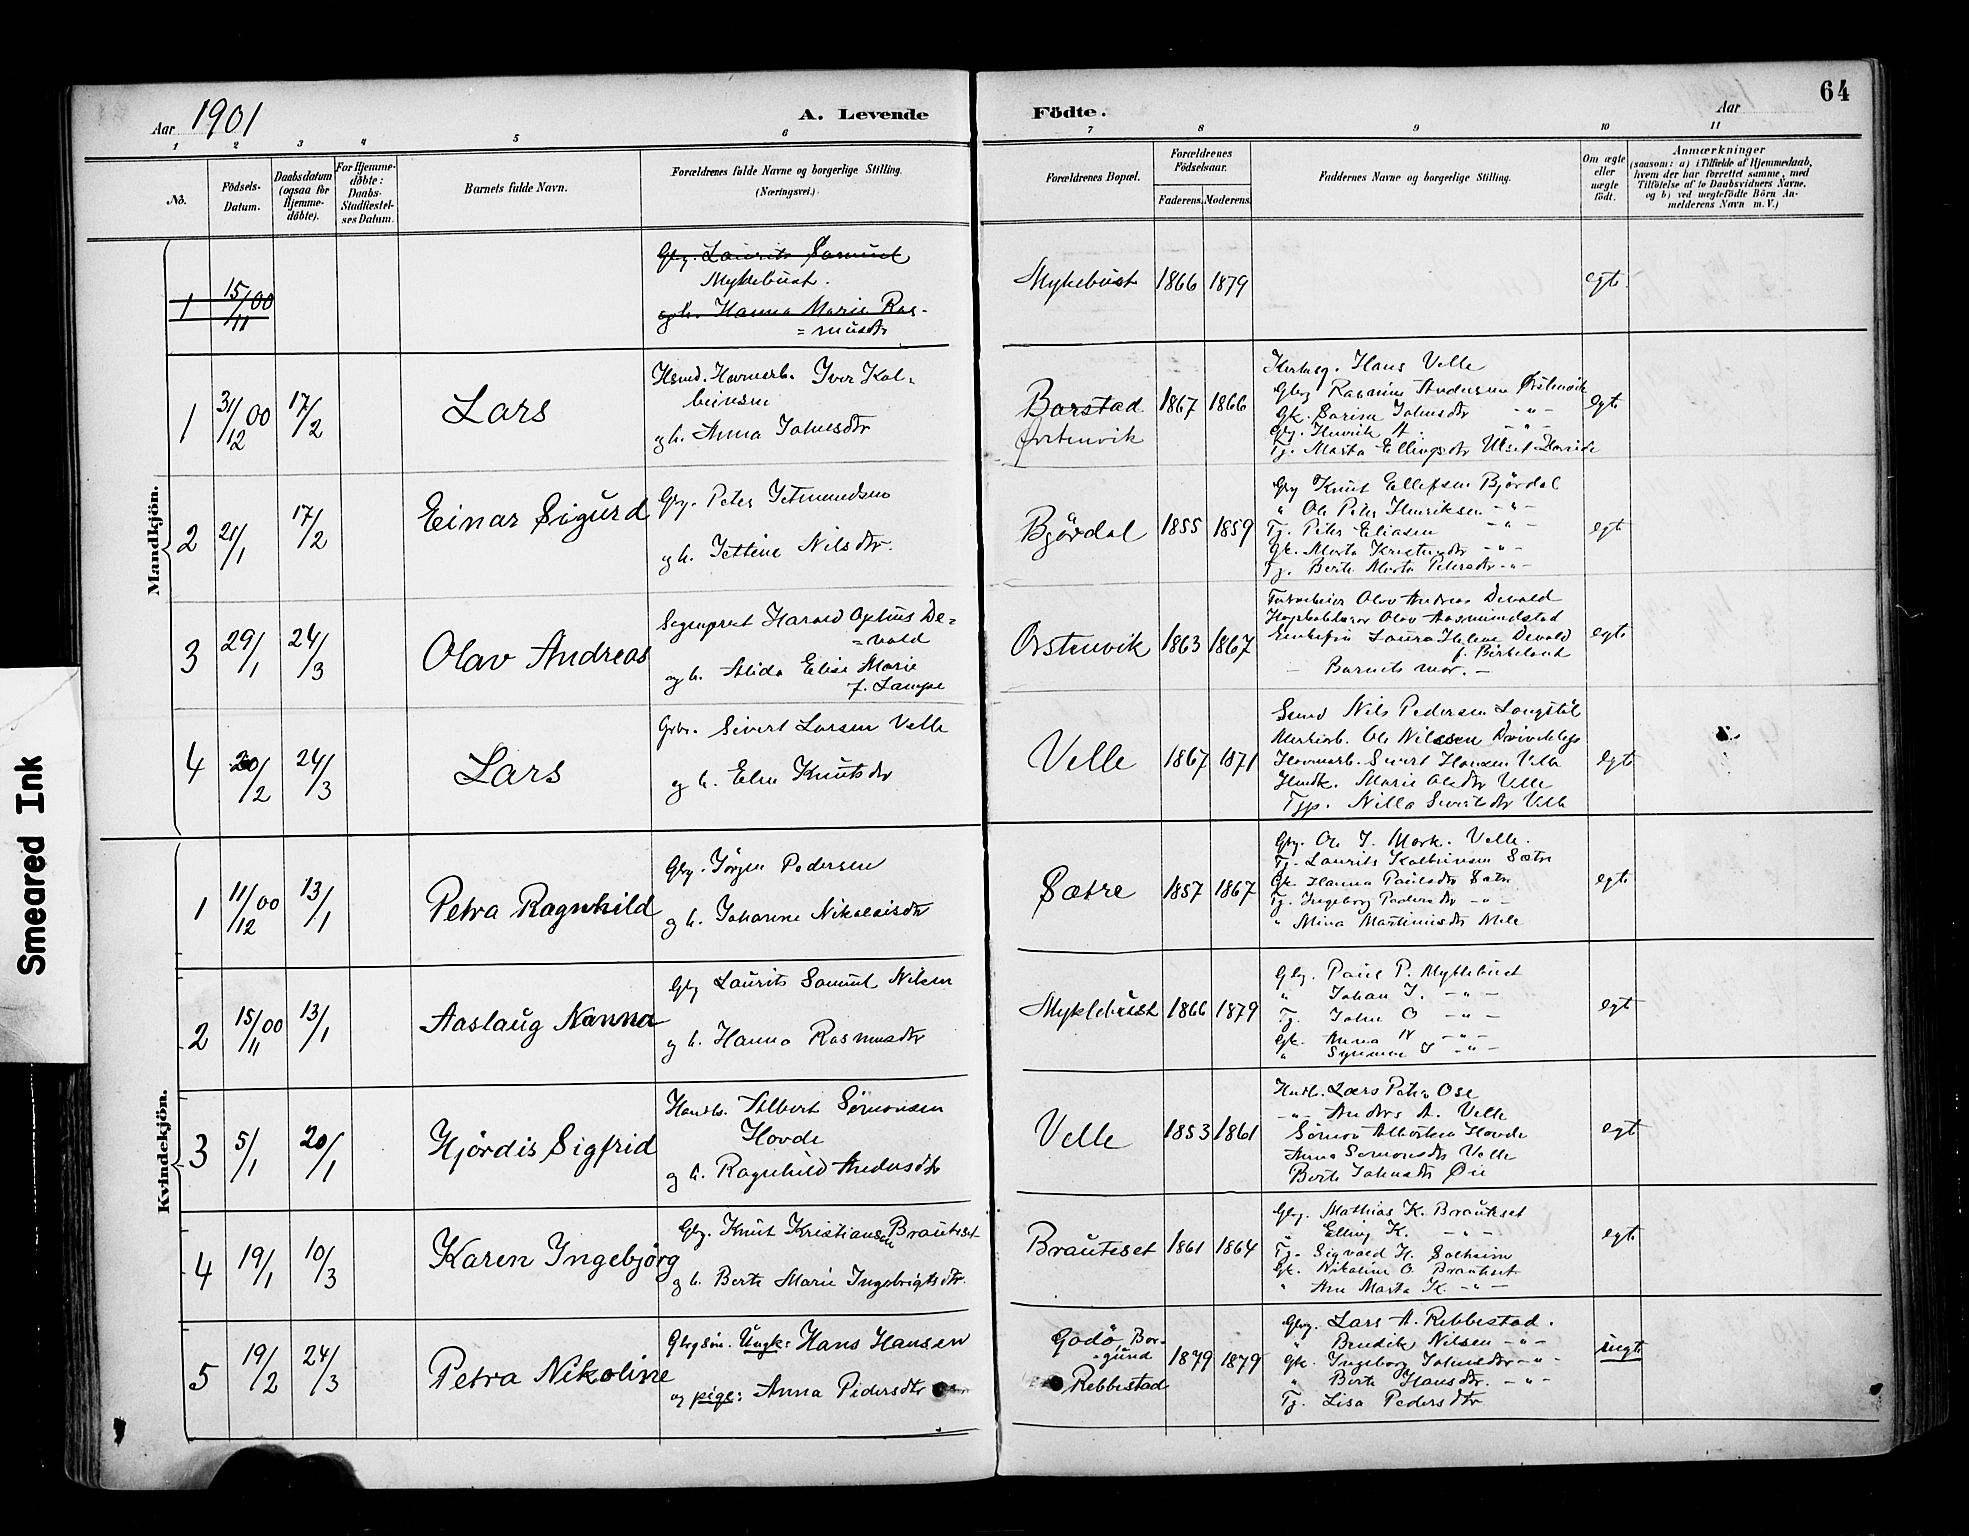 Aar 1901
A. Levende
Fødte.
Aar
64
1 2 3 4 5 6 7 8 9 10 11
No.
Födsels-Datum.
Daabsdatum (ogsaa for Hjemmedöbte).
For Hjemmedöbte: Daabs-Stadfæstelses Datum.
Barnets fulde Navn.
Forældrenes fulde Navne og borgerlige Stilling. (Næringsvei.)
Forældrenes Bopæl.
Forældrenes Födselsaar.
Faderens. Moderens.
Faddernes Navne og borgerlige Stilling.
Om ægte eller uægte födt.
Anmærkninger
(saasom: a) i Tilfælde af Hjemmedaab, hvem der har forrettet samme, med Tilföielse af to Daabsvidners Navne, og b) ved uægtefödte Börn Anmelderens Navn m. V.)
Mandkjön.
1 15/11 00
Gbr. Laurits Samuel
Myklebust.
og h. Hanna Marie Ras-
=musdtr
Myklebust 1866 1879 egte
1 31/12 00 17/2 Lars
Havnearb. Iver Kol-
beinsen
og h. Anna Johnsdtr
Barstad
Ørstenvik
1867 1866
Hans Velle
Gbrg Rasmus Andersen Ørstenvik
Gk. Sarine Johnsdtr -"-
Gbrg. Henrik A. -"-
Tj. Marta Ellingsdtr Ulset Hareide
egte
2 21/1 17/2 Einar Sigurd
Gbrg. Peter Jetmundsen
og h. Jettine Nilsdtr.
Bjørdal 1855 1859
Gbrg Knut Ellefsen Bjørdal
" Ole Peter Henriksen -"-
Tj. Peter Eliasen -"-
Gk. Marta Kristensdtr -"-
Tj. Berte Marta Petersdtr -"-
egte
3 29/1 24/3 Olav Andreas
Sogneprest Harald Ophus De-
=vold
og h. Alida Elise Marie
f. Lampe
Ørstenvik 1863 1867
Olav Andreas Devold
Olav Aasmundstad
Enkefru Laura Helene Devold
f. Birkeland
- Barnets mor. -
egte
4 20/2 24/3 Lars
Gbr. Sivert Larsen Velle
og h. Elen Knutsdtr
Velle 1867 1871
Nils Pedersen Langstöl
Ole Nilssen
Havnearb. Sivert Hansen Velle
Marie Olsdtr Velle
Tjp. Nilla Sivertsdtr Velle
egte
Kvindekjön.
1 11/12 00 13/1 Petra Ragnhild
Gbrg. Jørgen Pedersen
og h. Johanne Nikolaisdtr
Sætre 1857 1867
Gbrg. Ole J. Mork. Velle.
Tj. Laurits Kolbeinsen Sætre
Gk. Hanna Paulsdtr Sætre
Tj. Ingeborg Pedersdtr -"-
" Mina Martinusdtr Mele
egte
2 15/11 00 13/1 Aaslaug Nanna
Gbrg Laurits Samuel Nilsen
og h. Hanna Rasmusdtr
Myklebust 1866 1879
Gbrg. Paul P. Myklebust
" Johan J. -"-
Tj. John O -"-
Gk. Anna N -"-
" Synneve J -"-
egte
3 5/1 20/1 Hjördis Sigfrid
Handb. Albert Sømonsen
Hovde
og h. Ragnhild Andersdtr
Velle 1853 1861
Handb. Lars Peter Ose
-"- Anders A. Velle
Sømon Albertsen Hovde
Anna Sømonsdtr Velle
Berte Johnsdtr Øie
egte
4 19/1 10/3 Karen Ingebjörg
Gbrg. Knut Kristiansen Brauteset
og h. Berte Marie Ingebrigtsdtr.
Brauteset 1861 1864
Gbrg. Mathias K. Brauteset
" Elling K. -"-
Tj. Sigvald H. Solheim
Gk. Nikoline O. Brauteset
" Ane Marta K. -"-
egte
5 19/2 24/3 Petra Nikoline
Gbrgsøn. Ungk: Hans Hansen
og pige: Anna Pedersdtr
Godö, Bor-
=gund
Rebbestad
1879 1879
Gbrg. Lars A. Rebbestad.
" Bendik Nilsen -"-
Gk. Ingeborg Johnsdtr -"-
" Berte Hansdtr. -"-
Tj. Lisa Pedersdtr
uegt
Smeared Ink